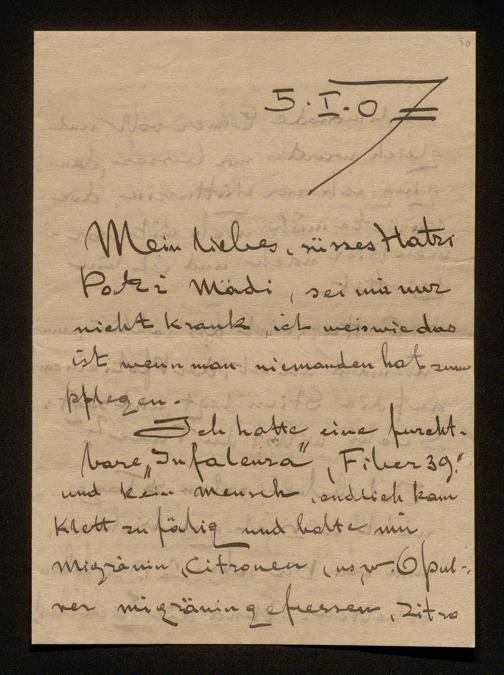 50
5.I.07
Mein liebes, süsses Hatzi
Potzi Mädi, sei mir nur
nicht krank, ich weis wie das
ist, wenn man niemanden hat zum
pflegen.
Ich hatte eine furcht-
bare „Infalenza", (Fiber 39.°
und kein Mensch, endlich kam
Klett zufälig und holte mir
Migränin, Citronen, usw. 6 pul-
ver migränin gefressen, zitro